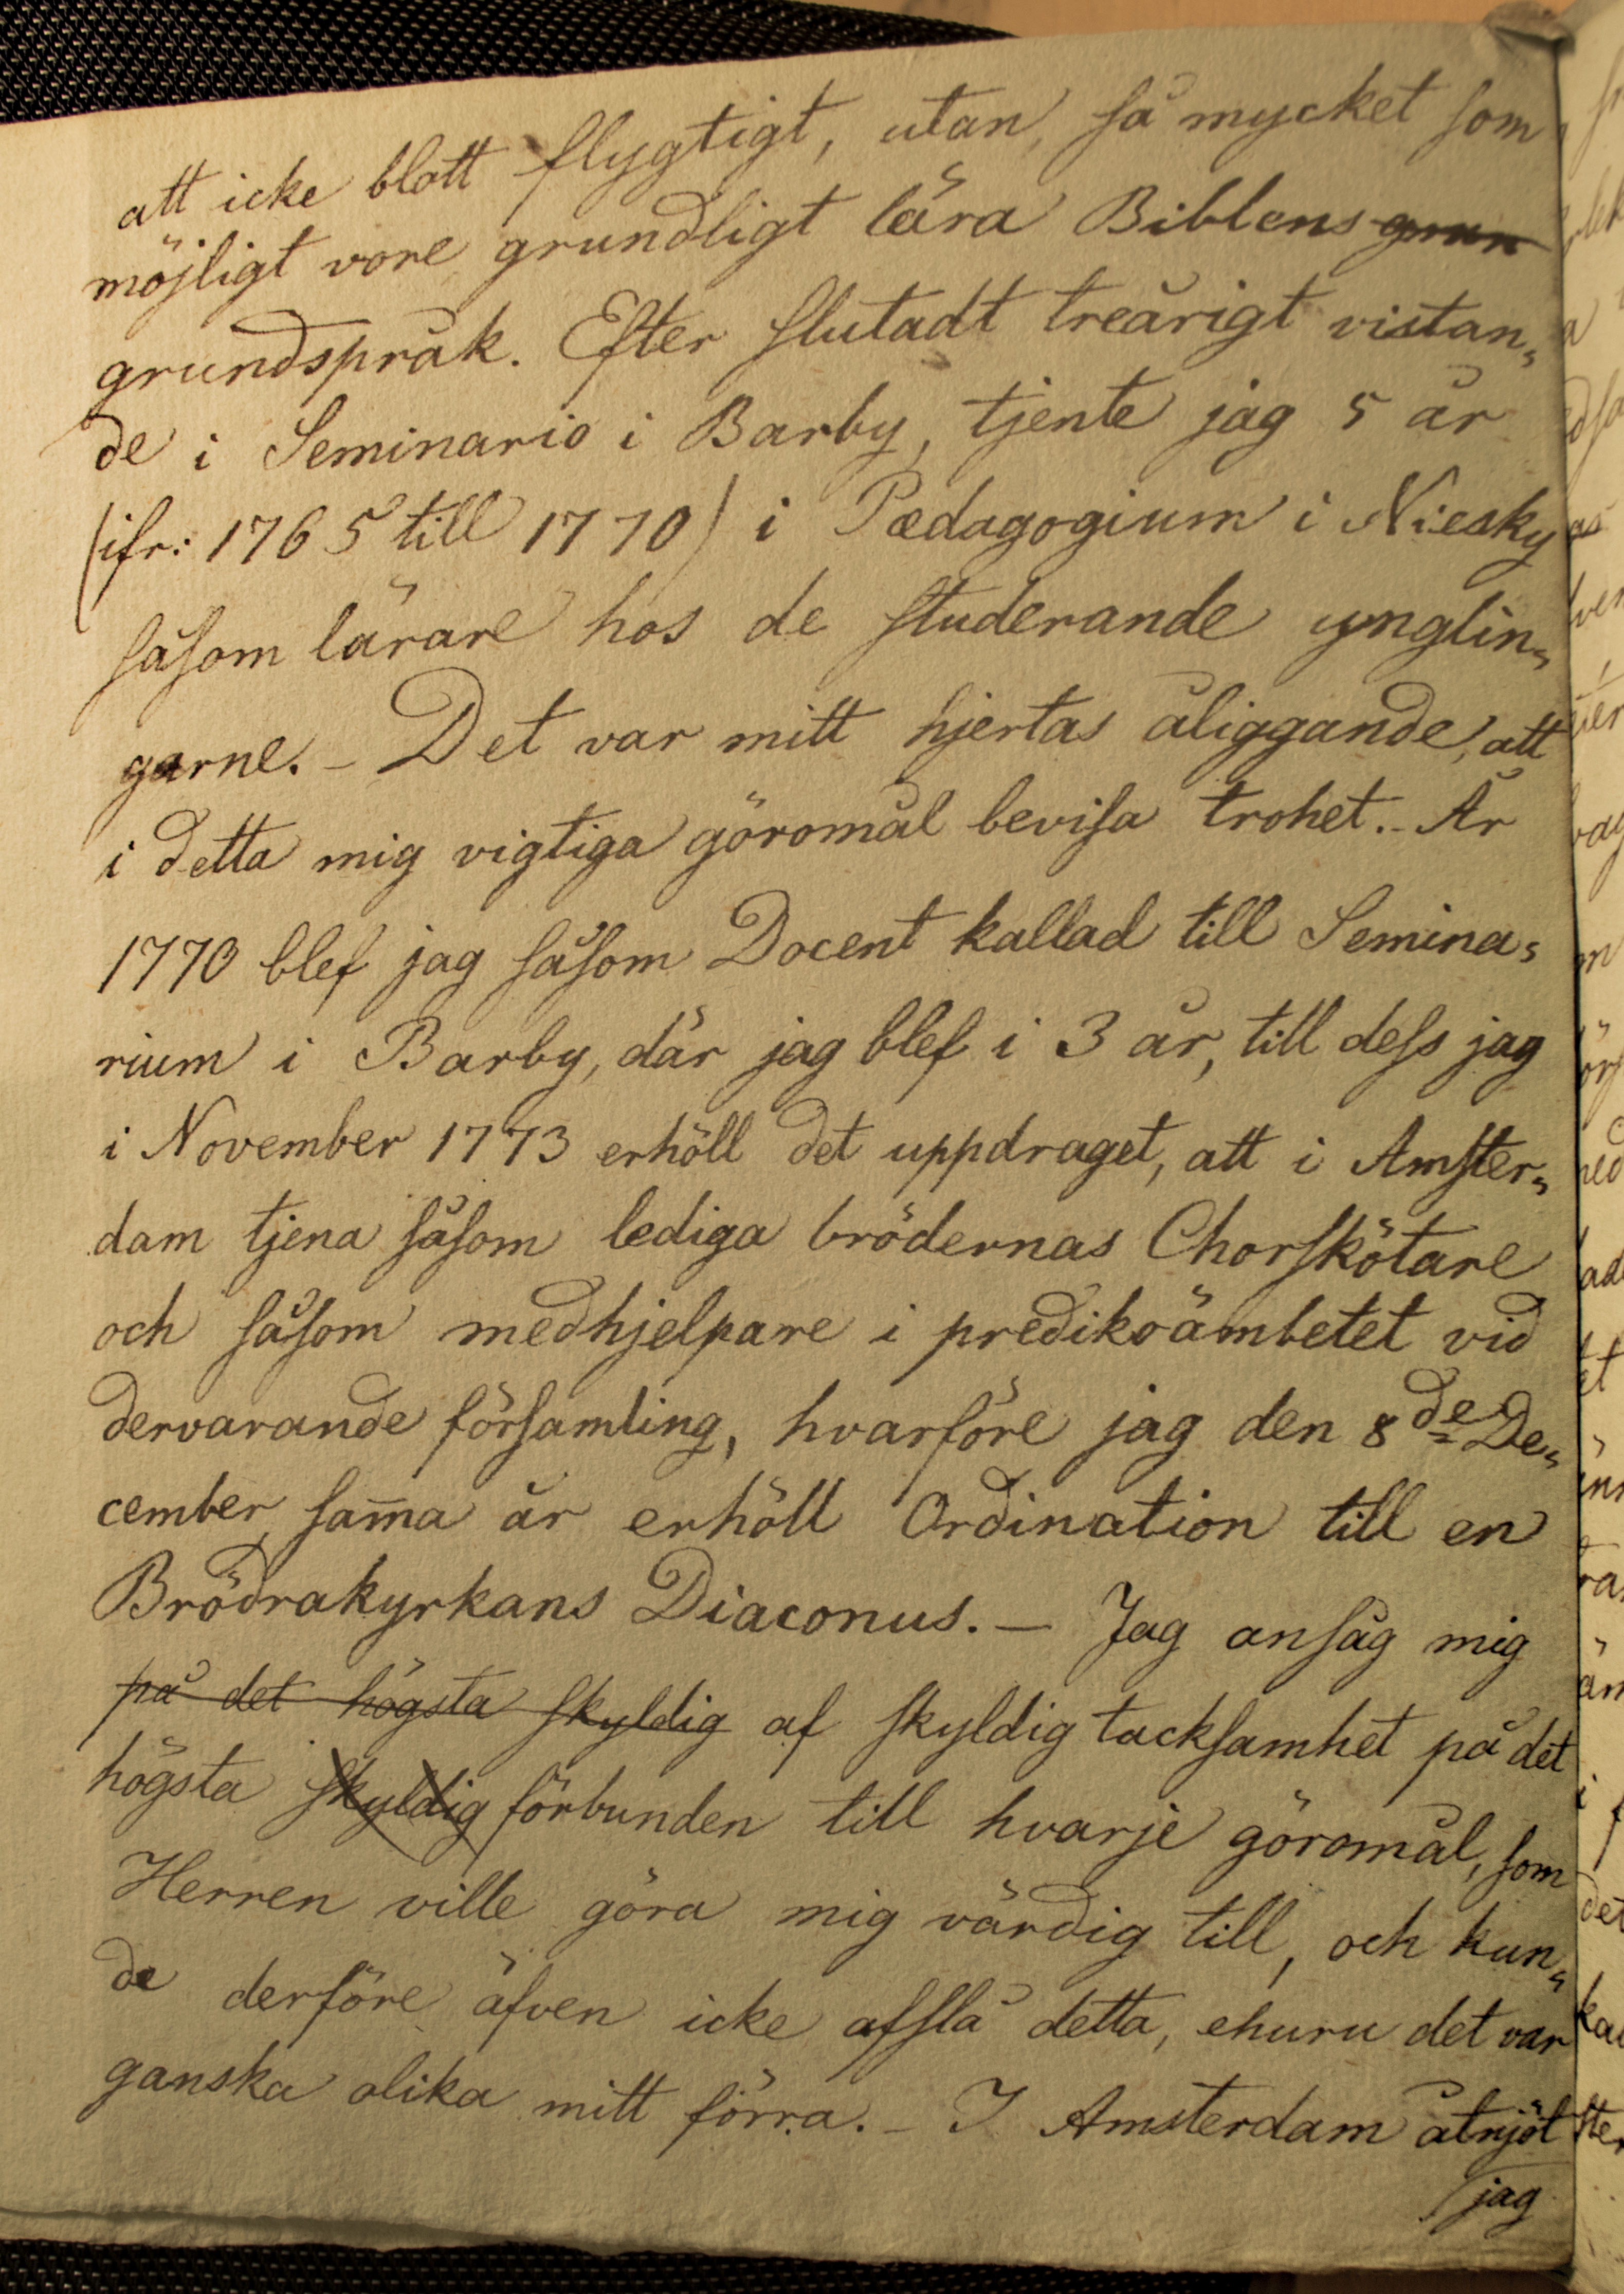 att icke blott flygtigt, utan, så mycket som
möjligt vore grundligt lära Biblens grun
grundspråk. Efter slutadt treårigt vistan„
de i Seminario i Barby, tjente jag 5 år
(ifr: 1765 till 1770) i Pædagogium i Niesky
såsom lärare hos de studerande ynglin„
garne. – Det var mitt hjertas åliggande, att
i detta mig vigtiga göromål bevisa trohet. – År
1770 blef jag såsom Docent kallad till Semina„
rium i Barby, där jag blef i 3 år, till dess jag
i November 1773 erhöll det uppdraget, att i Amster„
dam tjena såsom lediga brödernas Chorskötare
och såsom medhjelpare i predikoämbetet vid
dervarande församling, hvarföre jag den 8de De„
cember sam̄a år erhöll Ordination till en
Brödrakyrkans Diaconus. – Jag ansåg mig
på det högsta skyldig af skyldig tacksamhet på det
högsta skyldig förbunden till hvarje göromål, som
Herren ville göra mig värdig till, och kun„
de derföre äfven icke afslå detta, ehuru det var
ganska olika mitt förra. – I Amsterdam åtnjöt
jag